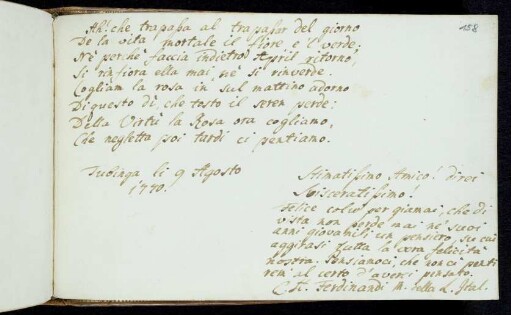 158
Ah! che trapassa al trapassar del giorno
De la vita mortale il fiore e 'l verde;
Nè perchè faccia indietro April ritorno,
Si rinfiora ella mai, nè si rinverde.
Cogliam la rosa in sul mattino adorno
Di questo dì, che tosto il seren perde:
Della Virtù la Rosa ora cogliamo,
Che negletta poi tardi ci pentiamo.
Tubinga li 9 Agosto
1770.
Stimatissimo Amico! direi
Svisceratissimo!
Felice colui per giamai, che di
vista non perde mai ne' suoi
anni giovanili un pensiero, su cui
aggirasi tutta la vera felicità
nostra. Pensiamoci, che non ci penti
rem al certo d'averci pensato.
C. A. Ferdinandi M. della L. Ital.